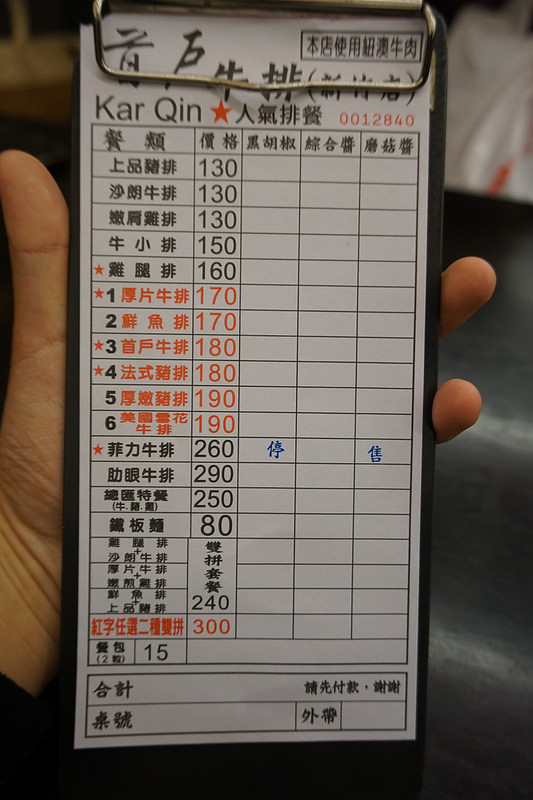 本店使用紐澳牛肉
首戶牛排(新竹店)
Kar Qin ★人氣排餐 0012840
餐類 價格 黑胡椒 綜合醬 磨菇醬
上品豬排 130
沙朗牛排 130
嫩肩雞排 130
牛小排 150
★雞腿排 160
★1厚片牛排 170
2鮮魚排 170
★3首戶牛排 180
★4法式豬排 180
5厚嫩豬排 190
6美國雪花牛排 190
★菲力牛排 260 停 售
肋眼牛排 290
總匯特餐 250
(牛.豬.雞)
鐵板麵 80
雞腿排+沙朗牛排 雙拼套餐 240
厚片牛排+嫩煎雞排
鮮魚排+上品豬排
紅字任選二種雙拼 300
餐包 15
(2粒)
合計 請先付款，謝謝
桌號 外帶